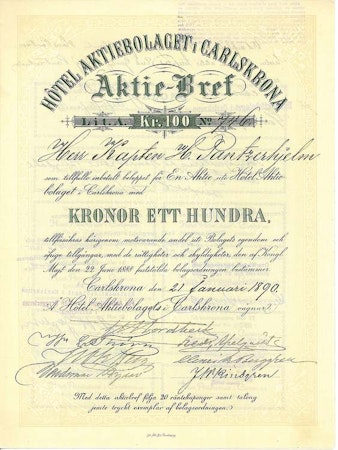 HÔTEL AKTIEBOLAGET i CARLSKRONA
Aktie-Bref
Litt. A. Kr. 100 No 746
Herr Kapten H. Pantzerhjelm
som tillfullo inbetalt beloppet för En Aktie uti Hôtel Aktie-
bolaget i Carlskrona med
KRONOR ETT HUNDRA,
tillförsäkras härigenom motsvarande andel uti Bolagets egendom och
öfriga tillgångar, med de rättigheter och skyldigheter, den af Kongl.
Majt den 22 Juni 1888 fastställda bolagsordningen bestämmer.
Carlskrona den 21 Januari 1890.
å Hôtel Aktiebolagets i Carlskrona vägnar:
J W Lindgren
Med detta aktiebref följa 20 räntekuponger samt talong
jemte tryckt exemplar af bolagsordningen.